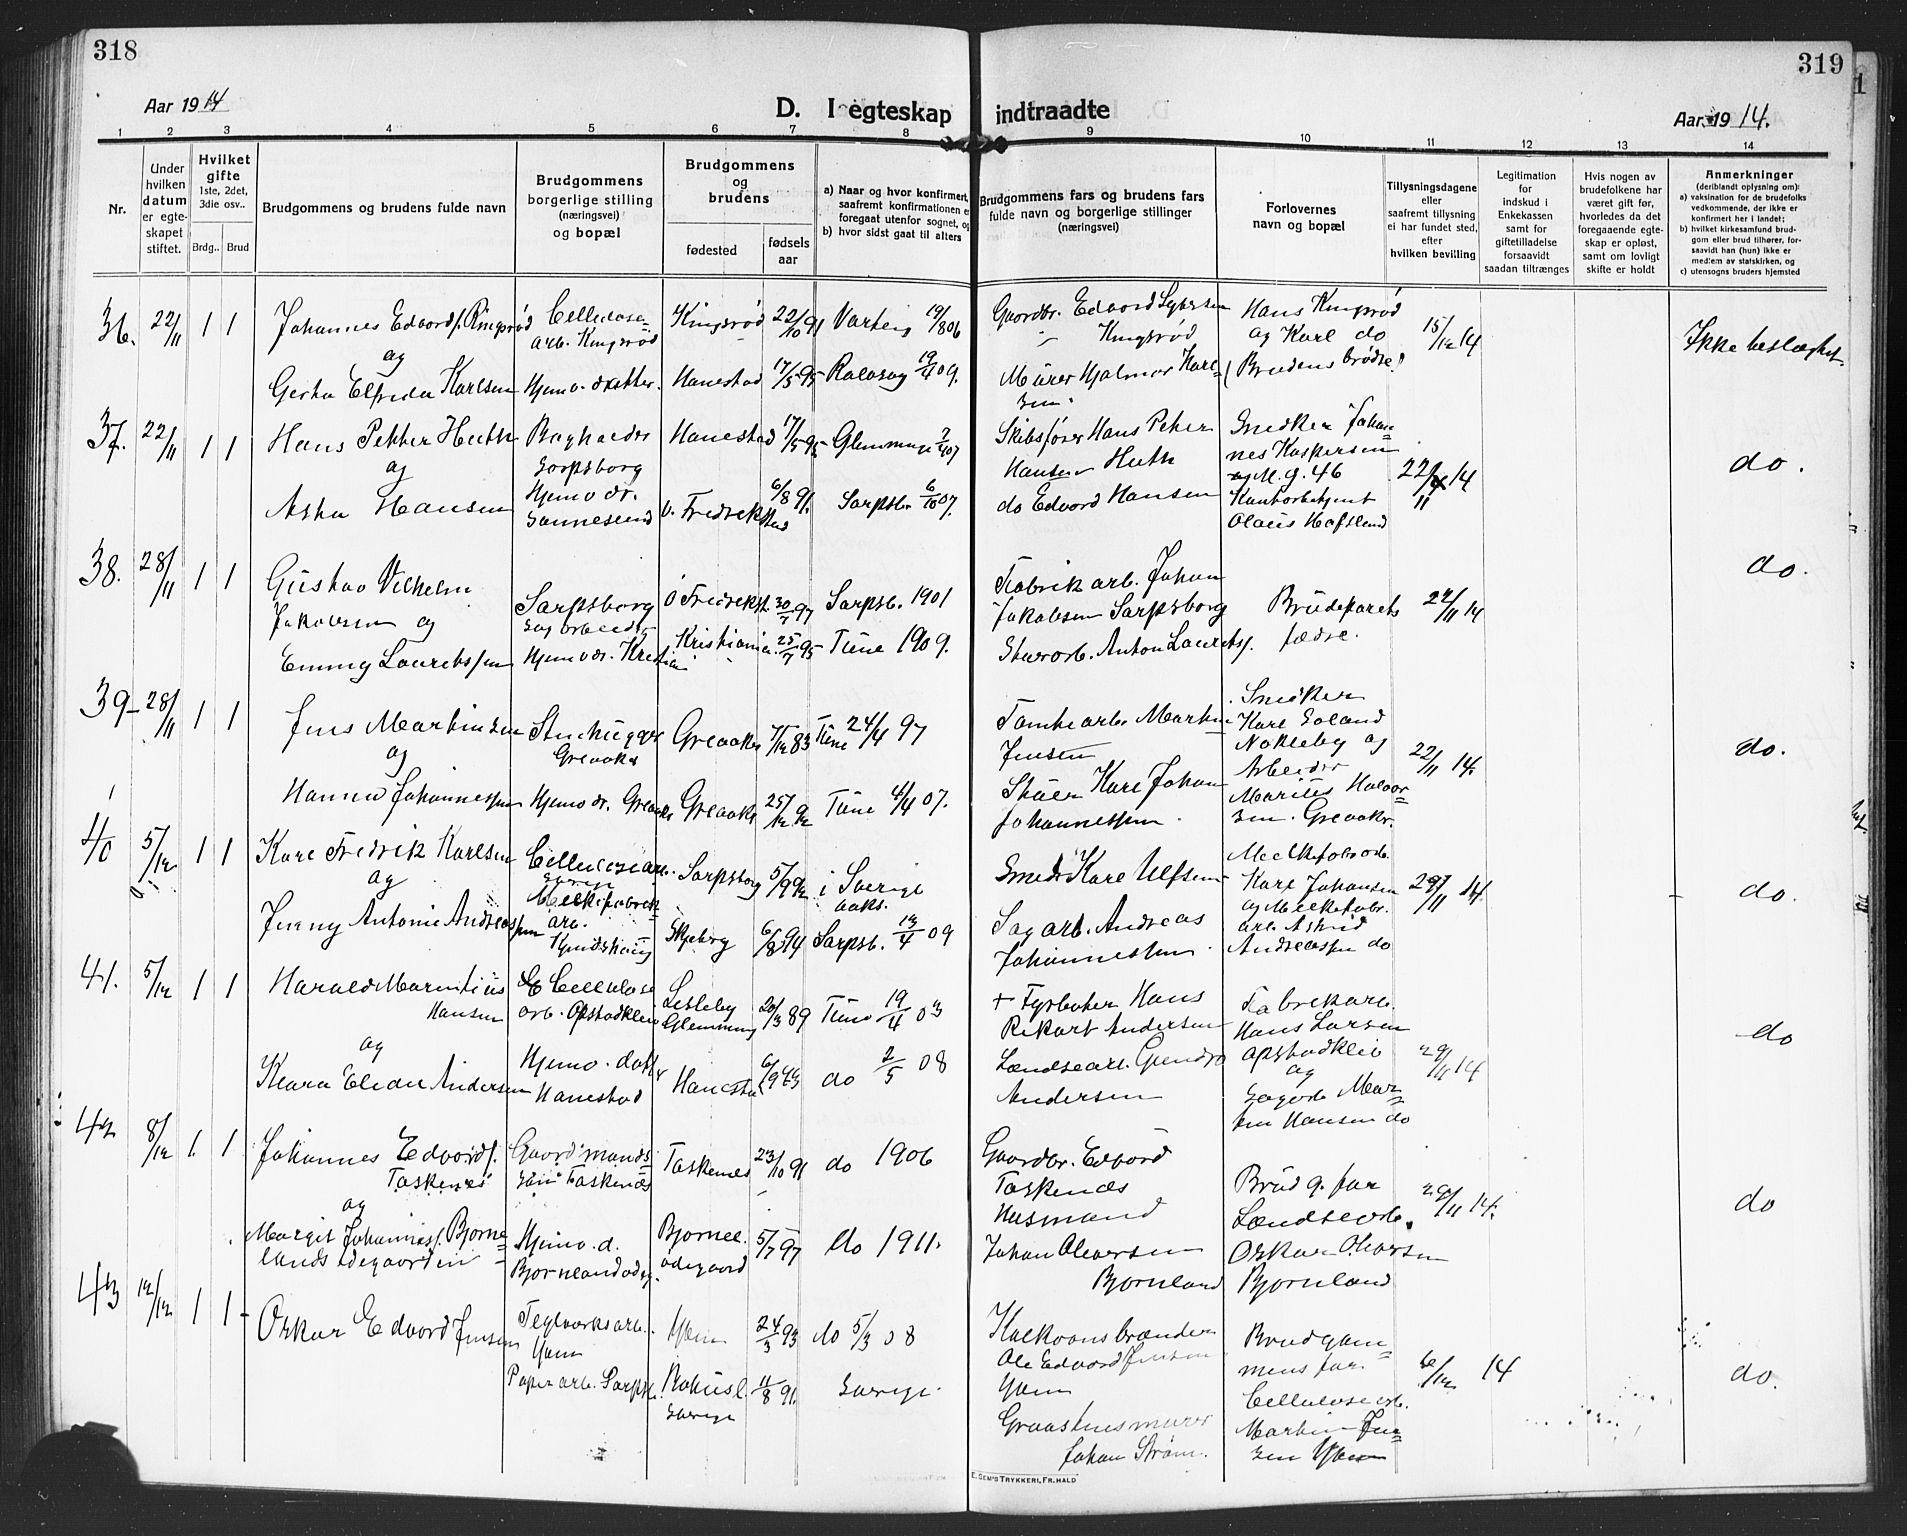 318
Aar 1914
D. I egteskap
1 2 3 4 5 6 7 8
Nr.
Under hvilken datum er egteskapet stiftet.
Hvilket gifte
1ste, 2det, 3die osv..
Brdg.. Brud
Brudgommens og brudens fulde navn
Brudgommens borgerlige stilling (næringsvei) og bopæl
Brudgommens og brudens
fødested
fødsels aar
a) Naar og hvor konfirmert, saafremt konfirmationen er foregaat utenfor sognet, og
b) hvor sidst gaat til alters
36. 22/11 1 1 Johannes Edvards. Kingsrød Cellulose- Kingsrød 22/10 91 Varteig 19/8 06
arb. Kingsrød
og
Gerha Elfrida Karlsen Hjemv. datter. Hanestad 17/5 95 Rolvsøy 09.
37. 22/11 1 1 Hans Petter Huth Hanestad 17/5 95 Glemminge 7/4 07
Sarpsborg
og
Hjemv dr.
Asta Hansen Sannesund v. Fredrikstad 6/8 91. Sarpsb. 6/10 07.
38. 28/11 1 1 Gustav Vilhelm
Jakobsen og Sarpsborg Ø Fredrikst. 30/7 97 Sarpsb. 1901
Sagarbeider
Emmy Lauritssen Hjemv dr. Kristiania Kristiania. 25/7 95 Tune 1909.
39 28/11 1 1 Jens Martinsen Stenhugger Greaaker 7/12 83 Tune 24/4 97
Greaaker
og
Hanna Johannessen Hjemv dr. Greaaker Greaaker 25/12 Tune 4/4 07.
40 5/12 1 1 Karl Fredrik Karlsen Cellulosearb. Sarpsborg 5/9 92 i Sverige
og
Jenny Antonie Andreassen arb. Skjeberg 6/8 94 Sarpsb. 13/4 09
41. 5/12 1 1 Harald Marentius Cellulose Lisleby
Hansen arb. Opstadkleiv Glemming 20/3 89 Tune 19/4 03
og
Klara Elida Andersen Hjemv. datt. Hanestad do 2/5 08
Hanestad
42 8/12 1. 1 Johannes Edvards. Gaardmands- Taskenes 23/10 91 do 1906
Taskenes søn Taskenes
og
Margit Johannes. Bjorne- Hjemv. d. Bjornel. 5/7 97 do 1911.
lands ødegaarden Bjorneland ødeg. ødegaard
43 12/12 1 1 Oskar Edvard Jensen Teglverksarb. Yven 24/3 93 do 5/3 08
Yven
Papirarb. Sarpsb. Bohusl. 11/8 91. Sverige.
Sverige
319
indtraadte
Aar 1914.
9 10 11 12 13 14
Brudgommens fars og brudens fars fulde navn og borgerlige stillinger (næringsvei)
Forlovernes navn og bopæl
Tillysningsdagene eller saafremt tillysning ei har fundet sted, efter hvilken bevilling
Legitimation for indskud i Enkekassen samt for giftetilladelse forsaavidt saadan tiltrænges
Hvis nogen av brudefolkene har været gift før, hvorledes da det foregaaende egteskap er opløst, samt om lovligt skifte er holdt
Anmerkninger
(deriblandt oplysning om):
a) vaksination for de brudefolks vedkommende, der ikke er konfirmert her i landet;
b) hvilket kirkesamfund brudgom eller brud tilhører, forsaavidt han (hun) ikke er medlem av statskirken, og
c) utensogns bruders hjemsted
Gaardbr. Edvard Hans Kingsrød
Kingsrød og Karl do 15/12 14 Ikke beslægtet
Murer Hjalmar Karl- (Brudens brødre)
sen.
Skibsfører Hans Peter Snedker Johan-
Hansen Huth nes Kaspersen
M. g. 46 22/11 14 do.
do Edvard Hansen Kontorbetjent
Olaus Hafslund
Fabrikarb. Johan do.
Jakobsen Sarpsborg Brudeparets 22/11 14
Stenarb. Anton Laurits. fædre.
Tomtearb. Martin Snedker
Karl Soland
Jensen Nokleby og 22/11 14. do.
Skuer Karl Johan Arbeider
Marius Halvor-
Johannessen. sen. Greaaker.
Smed Karl Ulfsen Karl Johansen 29/11 14 do.
Sagarb. Andreas arb. Astrid
Johannessen Andreassen do
+ Fyrbøter Hans Fabrikarb.
Rikart Andersen Hans Larsen do
Opstadkleiv 29/11 14
og
Andersen Sagarb. Mar-
tin Hansen do
Gaardbr. Edvard
Taskenes Brudg. far 29/11 14. do
Husmand
Johan Olavssen Oskar Olavssen
Bjorneland Bjorneland
Kalkovnsbrænder Brudgom-
Ole Edvard Jensen mens far 6/12 14 do.
Yven Cellulosearb.
Graastensmurer Martin Jen-
Johan Strøm. sen Yven
E. SEM'S TRYKKERI, FR.HALD